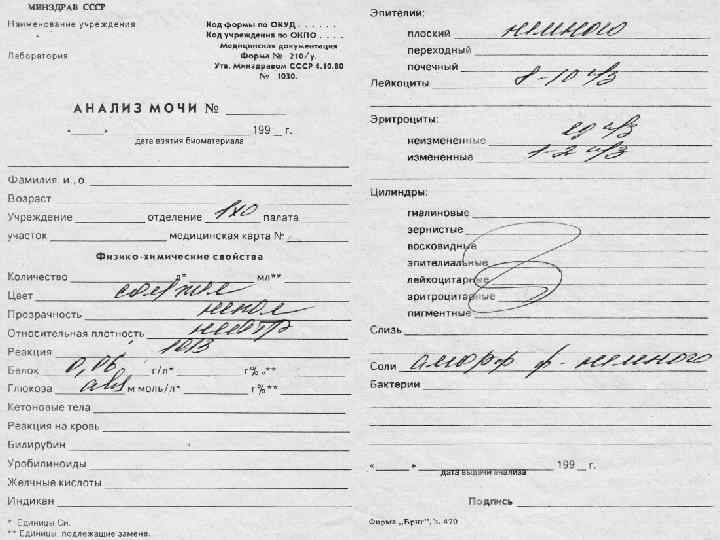 МИНЗДРАВ СССР
Наименование учреждения
Лаборатория
Код формы по ОКУД . . . . . .
Код учреждения по ОКПО . . . .
Медицинская документация
Форма № 210/у.
Утв. Минздравом СССР 4.10.80
№ 1030.
АНАЛИЗ МОЧИ №
« » 199 г.
дата взятия биоматериала
Фамилия, и., о.
Возраст
Учреждение отделение 1хо палата
участок медицинская карта №
Физико-химические свойства
Количество л* мл**
Цвет
Прозрачность
Относительная плотность
Реакция 1013
Белок 0,06 г/л* г%.**
Глюкоза abs м моль/л* г%**
Кетоновые тела
Реакция на кровь
Билирубин
Уробилиноиды
Желчные кислоты
Индикан
* Единицы Си.
** Единицы, подлежащие замене.
Эпителии:
плоский немного
переходный
почечный
Лейкоциты 8-10 п/з
Эритроциты:
неизмененные ед п/з
измененные 1-2 п/з
Цилиндры:
гиалиновые
зернистые
восковидные
эпителиальные
лейкоцитарные
эритроцитарные
пигментные
Слизь
Соли аморф ф-немного
Бактерии
« » 199 г.
дата выдачи анализа
Подпись
Фирма „Бриг", З. 470